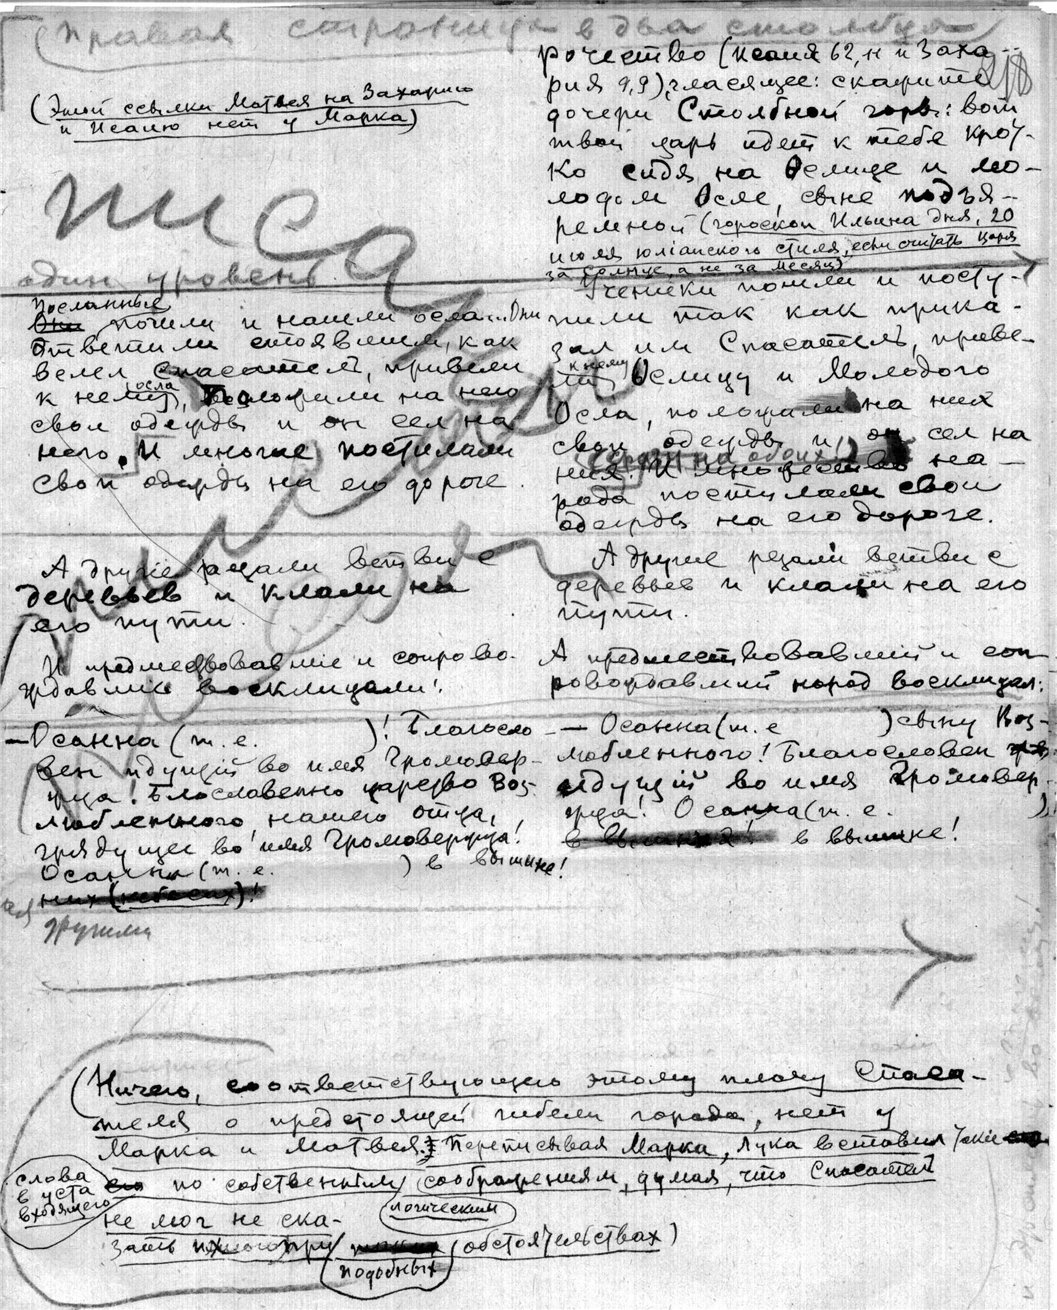 (правая страница в два столбца)
(Этой ссылки Матвея на Захарию
и Исаию нет у Марка)
один уровень
Посланные
пошли и нашли осла... Они
ответили стоявшим, как
велел Спасатель, привели
к нему (осла), положили на него
свои одежды и он сел на
него. И многие постилали
свои одежды на его дороге.
А другие резали ветви с
деревьев и клали на
его пути.
И предшествовавшие и сопрово-
ждавшие восклицали:
— Осанна (т. е. )! Благосло-
вен идущий во имя Громовер-
жца! Благословенно царство Воз-
любленного, нашего отца,
грядущее во имя Громовержца!
Осанна (т. е. ) в вышине!
них (небесах)!
рочество (Исаия 62, 11 и Заха-
рия 9,9), гласящее: скажите
дочери Столбной горы: вот
твой царь идет к тебе крот-
ко сидя на Ослице и мо-
лодом Осле, сыне подъя-
ремной (гороскоп Ильина дня, 20
июля юлианского стиля, если считать царя
за солнце, а не за месяц)
Ученики пошли и посту-
пили так как прика-
зал им Спасатель, приве-
ли к нему Ослицу и Молодого
Осла, положили на них
свои одежды и он сел на
них. И множество на-
рода постилали свои
одежды на его дороге.
А другие резали ветви с
деревьев и клали на его
пути.
А предшествовавший и соп-
ровождавший народ восклицал:
— Осанна (т. е. ) сыну Воз-
любленного! Благословен
идущий во имя Громовер-
жца! Осанна (т. е. )
в вышине!
(Ничего, соответствующего этому плачу Спаса-
теля о предстоящей гибели города, нет у
Марка и Матвея. Переписывая Марка, Лука вставил
слова
в уста
входящего
по собственным логическим соображениям, думая, что Спасатель
не мог не ска-
зать при подобных обстоятельствах)